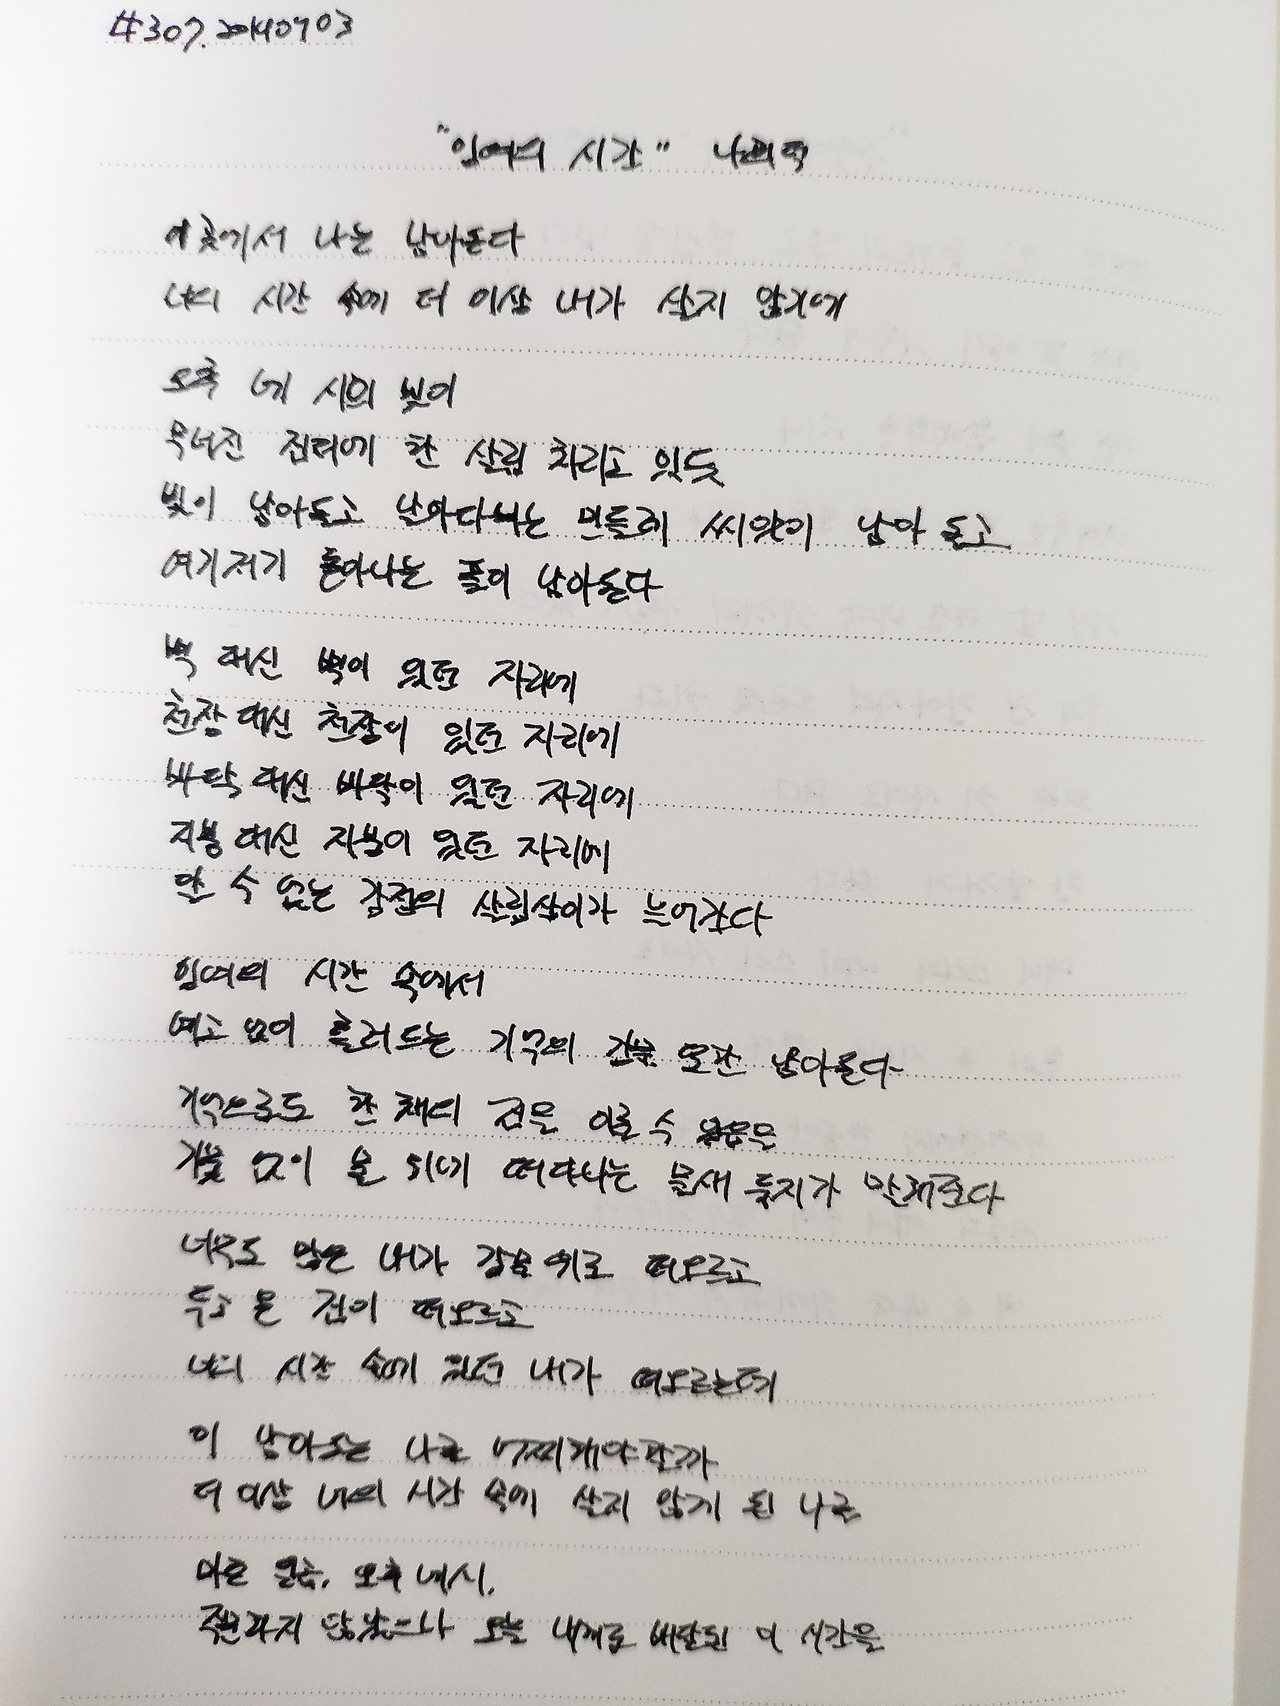 #307. 20140703
"잉여의 시간" 나희덕
이곳에서 나는 남아돈다
너의 시간 속에 더 이상 내가 살지 않기에
오후 네 시의 빛이
무너진 집터에 한 살림 차리고 있듯
빛이 남아돌고 날아다니는 민들레 씨앗이 남아 돌고
여기저기 돋아나는 풀이 남아돈다
벽 대신 벽이 있던 자리에
천장 대신 천장이 있던 자리에
바닥 대신 바닥이 있던 자리에
지붕 대신 지붕이 있던 자리에
알 수 없는 감정의 살림살이가 늘어간다
잉여의 시간 속에서
예고 없이 흘러드는 기억의 강물 또한 남아돈다
기억으로도 한 채의 집을 이룰 수 있음을
가뭇 없이 물 위에 떠다니는 물새 둥지가 말해준다
너무도 많은 내가 강물 위로 떠오르고
두고 온 집이 떠오르고
너의 시간 속에 있던 내가 떠오르는데
이 남아도는 나를 어찌해야할까
더 이상 너의 시간 속에 살지 않게 된 나를
마흔 일곱, 오후 네시,
주문하지 않았으나 오늘 내게로 배달된 이 시간을